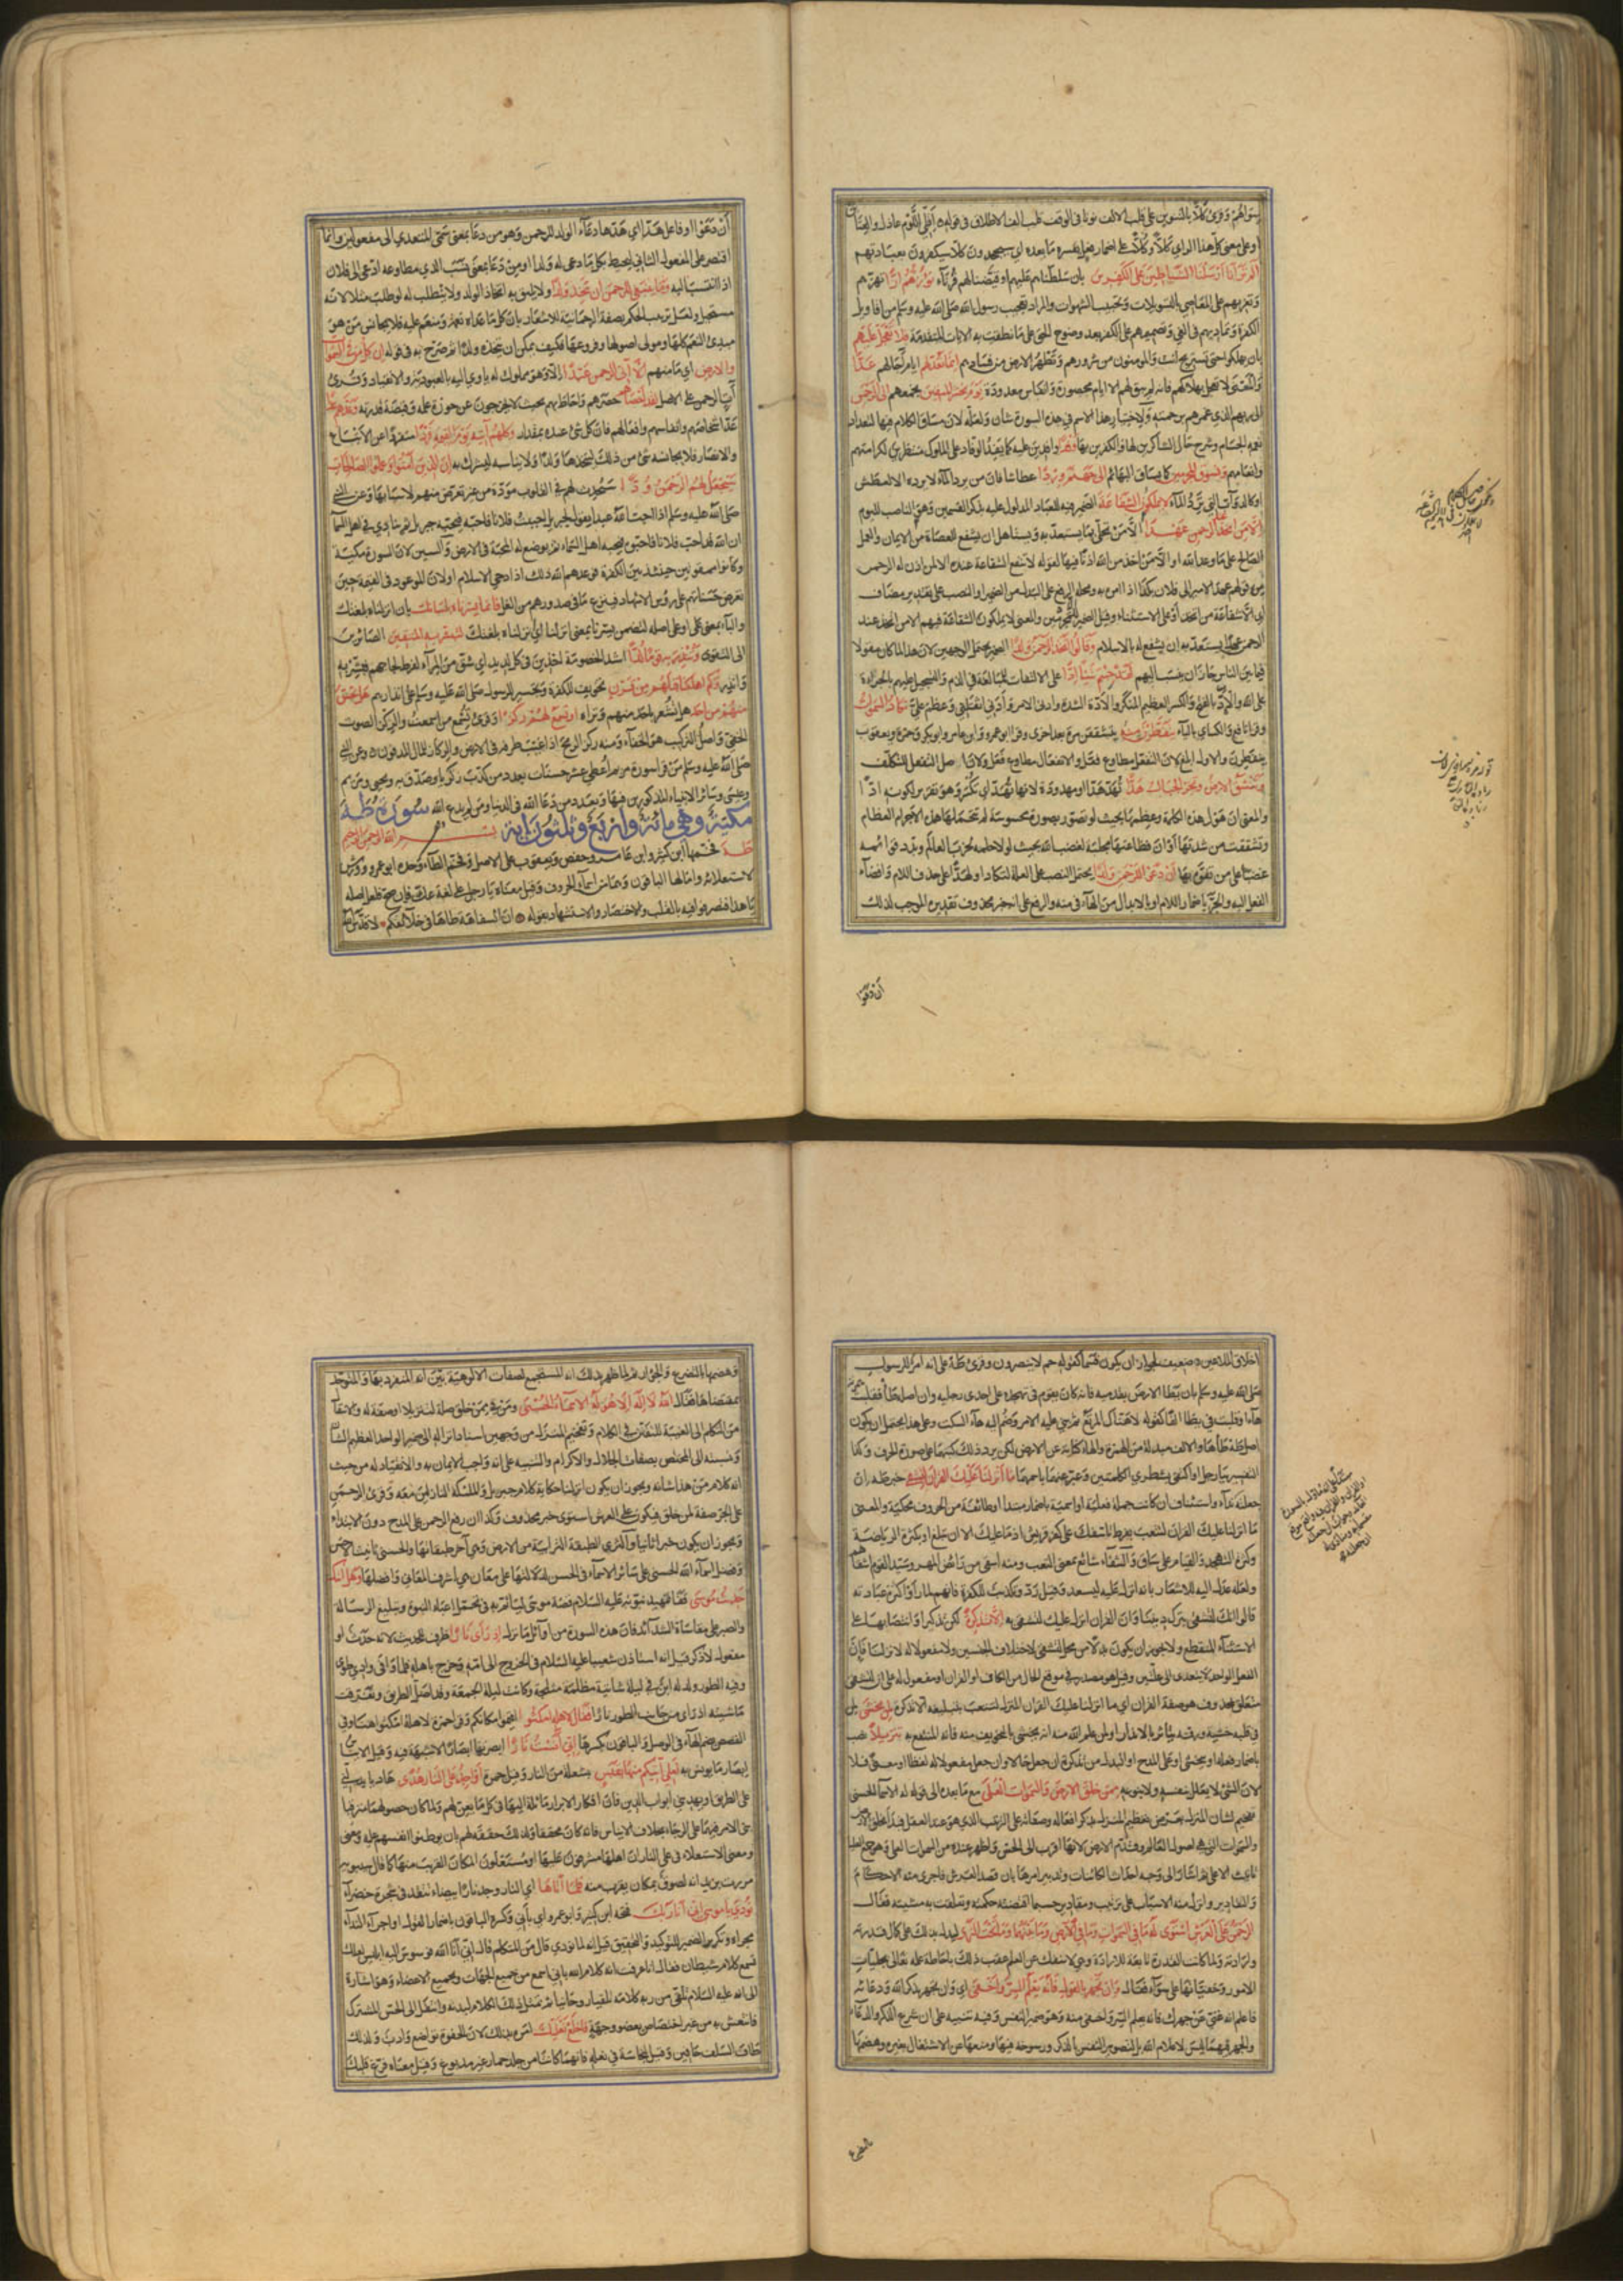 وعلى معنى كل هذا الراي كلا وكلا على اضمار فعل يفسره ما بعده اي سيجحدون كلا سيكفرون بعبادتهم
الم تر انا ارسلنا الشياطين على الكفرين بان سلطناهم عليهم او قيضنا لهم قرناء تؤزهم ازا تهزهم
وتغريهم على المعاصي بالتسويلات وتحبيب الشهوات والمراد تعجيب رسول الله صلى الله عليه وسلم من اقاويل
الكفرة وتماديهم في الغي وتصميمهم على الكفر بعد وضوح الحق على ما نطقت به الايات المتقدمة فلا تعجل عليهم
بان يهلكوا حتى تستريح انت والمومنون من شرورهم وتطهر الارض من فسادهم انما نعد لهم ايام اجالهم عدا
والمعنى لا تعجل بهلاكهم فانه لم يبق لهم الا ايام محصورة وانفاس معدودة يوم نحشر المتقين نجمعهم الى الرحمن
الى ربهم الذي غمرهم برحمته ولاختيار هذا الاسم في هذه السورة شان ولعله لان مساق الكلام فيها لتعداد
نعمه الجسام وشرح حال الشاكرين لها والكافرين بها وفدا وافدين عليه كما يفد الوفاد على الملوك منتظرين لكرامتهم
وانعامهم ونسوق المجرمين كما يساق البهائم الى جهنم وردا عطاشا فان من يرد الماء لا يورده الا لعطش
او كالدواب التي ترد الماء لا يملكون الشفاعة الضمير فيه للعباد المدلول عليه بذكر القسمين وهو الناصب لليوم
الا من اتخذ عند الرحمن عهدا الا من تحلى بما يستعد به ويستاهل ان يشفع للعصاة من الايمان والعمل
الصالح على ما وعد الله او الا من اتخذ من الله اذنا فيها لقوله لا تنفع الشفاعة عنده الا لمن اذن له الرحمن
من قولهم عهد الامير الى فلان بكذا اذا امره به ومحله الرفع على البدل من الضمير او النصب على تقدير مضاف
اي الا شفاعة من اتخذ او على الاستثناء وقيل الضمير للمجرمين والمعنى لا يملكون الشفاعة فيهم الا من اتخذ عند
الرحمن عهدا يستعد به ان يشفع له بالاسلام وقالوا اتخذ الرحمن ولدا الضمير يحتمل الوجهين لان هذا لما كان مقولا
فيما بين الناس جاز ان ينسب اليهم لقد جئتم شيئا ادا على الالتفات للمبالغة في الذم والتسجيل عليهم بالجراءة
على الله والاد بالفتح والكسر العظيم المنكر والادة الشدة وادني الامر وآدني اثقلني وعظم علي تكاد السموات
وقرا نافع والكساي بالياء يتفطرن منه يتشققن مرة بعد اخرى وقرا ابو عمرو وابن عامر وابو بكر وحمزة ويعقوب
ينفطرن والاول ابلغ لان التفعل مطاوع فعل والانفعال مطاوع فعل ولان اصل التفعل التكلف
وتنشق الارض وتخر الجبال هدا تهد هدا او مهدودة لانها تهد اي تكسر وهو تقرير لكونه ادا
والمعنى ان هول هذه الكلمة وعظمها بحيث لو تصور بصورة محسوسة لم تتحملها هذه الاجرام العظام
وتتشقق من شدتها او ان فظاعتها مجلبة لغضب الله بحيث لولا حلمه لخرب العالم وبدد قوائمه
غضبا على من تفوه بها ان دعوا للرحمن ولدا يحتمل النصب على العلة لتكاد او لهدا على حذف اللام وافضاء
الفعل اليه والجر باضمار اللام او بالابدال من الهاء في منه والرفع على انه خبر محذوف تقديره الموجب لذلك
ان دعوا
ان دعوا او فاعل هدا اي هدها دعاء الولد للرحمن وهو من دعا بمعنى سمى المتعدي الى مفعولين وانما
اقتصر على المفعول الثاني ليحيط بكل ما دعي له ولدا او من دعا بمعنى نسب الذي مطاوعه ادعى الى فلان
اذا انتسب اليه وما ينبغي للرحمن ان يتخذ ولدا ولا يليق به اتخاذ الولد ولا يتطلب له لو طلب مثلا لانه
مستحيل ولعل ترتيب الحكم بصفة الرحمانية للاشعار بان كل ما عداه نعمة ومنعم عليه فلا يجانس من هو
مبدئ النعم كلها ومولى اصولها وفروعها فكيف يمكن ان يتخذه ولدا ثم صرح به في قوله ان كل من في السموات
والارض اي ما منهم الا آتي الرحمن عبدا الا وهو مملوك له ياوي اليه بالعبودية والانقياد وقرئ
آت الرحمن على الاصل لقد احصاهم حصرهم واحاط بهم بحيث لا يخرجون عن حوزة علمه وقبضة قدرته وعدهم عدا
عد اشخاصهم وانفاسهم وافعالهم فان كل شئ عنده بمقدار وكلهم آتيه يوم القيمة فردا منفردا عن الاتباع
والانصار فلا يجانسه شئ من ذلك ليتخذه ولدا ولا يناسبه ليشرك به ان الذين آمنوا وعملوا الصالحات
سيجعل لهم الرحمن ودا سيحدث لهم في القلوب مودة من غير تعرض منهم لاسبابها وعن النبي
صلى الله عليه وسلم اذا احب الله عبدا يقول لجبريل احببت فلانا فاحبه فيحبه جبريل ثم ينادي في اهل السماء
ان الله قد احب فلانا فاحبوه فيحبه اهل السماء ثم يوضع له المحبة في الارض والسين لان السورة مكية
وكانوا ممقوتين حينئذ بين الكفرة فوعدهم الله ذلك اذا دجى الاسلام او لان الموعود في القيمة حين
تعرض حسناتهم على رؤس الاشهاد فينزع ما في صدورهم من الغل فانما يسرناه بلسانك بان انزلناه بلغتك
والباء بمعنى على او على اصله لتضمن يسرنا بمعنى انزلنا اي انزلناه بلغتك لتبشر به المتقين الصائرين
الى التقوى وتنذر به قوما لدا اشد الخصومة آخذين في كل لديد اي شق من المراء لفرط لجاجهم فبشر به
وانذر وكم اهلكنا قبلهم من قرن تخويف للكفرة وتجسير للرسول صلى الله عليه وسلم على انذارهم هل تحس
منهم من احد هل تشعر باحد منهم وتراه او تسمع لهم ركزا وقرئ تسمع من اسمعت والركز الصوت
الخفي واصل التركيب هو الخفاء ومنه ركز الرمح اذا غيب طرفه في الارض والركاز للمال المدفون وعن النبي
صلى الله عليه وسلم من قرا سورة مريم اعطي عشر حسنات بعدد من كذب زكريا وصدق به ويحيى ومريم
وعيسى وسائر الانبياء المذكورين فيها وبعدد من دعا الله في الدنيا ومن لم يدع الله سورة طه
مكية وهي مائة واربع وثلثون آية بسم الله الرحمن الرحيم
طه فخمها ابن كثير وابن عامر وحفص ويعقوب على الاصل وفخم الطاء وحده ابو عمرو وورش
لاستعلائه وامالها الباقون وهما من اسماء الحروف وقيل معناه يا رجل على لغة عك فان صح فلعل اصله
يا هذا فتصرفوا فيه بالقلب والاختصار والاستشهاد بقوله ان السفاهة طاها في خلائقكم لا قدس الله
اخلاق الملاعين ضعيف لجواز ان يكون قسما كقوله حم لا ينصرون وقرئ طه على انه امر للرسول
صلى الله عليه وسلم بان يطا الارض بقدميه فانه كان يقوم في تهجده على احدى رجليه وان اصله طا فقلبت
هاء او قلبت في يطا الفا كقوله لا هناك المرتع ثم بني عليه الامر وضم اليه هاء السكت وعلى هذا يحتمل ان يكون
اصل طه طاها والالف مبدلة من الهمزة والهاء كناية عن الارض لكن يرد ذلك كتبتهما على صورة الحرف وكذا
التفسير بيا رجل او اكتفى بشطري الكلمتين وعبر عنهما باسمهما ما انزلنا عليك القران لتشقى خبر طه ان
جعلته مبتدا واستئناف ان كانت جملة فعلية او اسمية باضمار مبتدا او طائفة من الحروف محكية والمعنى
ما انزلنا عليك القران لتتعب بفرط تاسفك على كفر قريش اذ ما عليك الا ان تبلغ او بكثرة الرياضة
وكثرة التهجد والقيام على ساق والشقاء شائع بمعنى التعب ومنه اشقى من رائض المهر وسيد القوم اشقاهم
ولعله عدل اليه للاشعار بانه انزل عليه ليسعد وقيل رد وتكذيب للكفرة فانهم لما راوا كثرة عبادته
قالوا انك لتشقى بترك ديننا وان القران انزل عليك لتشقى به الا تذكرة لكن تذكيرا وانتصابها على
الاستثناء المنقطع ولا يجوز ان يكون بدلا من محل لتشقى لاختلاف الجنسين ولا مفعولا له لانزلنا فان
الفعل الواحد لا يتعدى الى علتين وقيل هو مصدر في موقع الحال من الكاف او القران او مفعول له على ان لتشقى
متعلق بمحذوف هو صفة القران اي ما انزلنا عليك القران المنزل لتتعب بتبليغه الا تذكرة لمن يخشى لمن
في قلبه خشية ورقة يتاثر بالانذار او لمن علم الله منه انه يخشى بالتخويف منه فانه المنتفع به تنزيلا نصب
باضمار فعله او بيخشى او على المدح او البدل من تذكرة ان جعل حالا وان جعل مفعولا له لفظا او معنى فلا
لان الشئ لا يعلل بنفسه ولا بنوعه ممن خلق الارض والسموات العلى مع ما بعده الى قوله له الاسماء الحسنى
تفخيم لشان المنزل بفرض تعظيم المنزل بذكر افعاله وصفاته على الترتيب الذي هو عند العقل فبدا بخلق الارض
والسموات التي هي اصول العالم وقدم الارض لانها اقرب الى الحس واظهر عنده من السموات العلى وهو جمع العليا
تانيث الاعلى ثم اشار الى وجه احداث الكائنات وتدبير امرها بان قصد العرش فاجرى منه الاحكام
والتقادير وانزل منه الاسباب على ترتيب ومقادير حسبما اقتضته حكمته وتعلقت به مشيته فقال
الرحمن على العرش استوى له ما في السموات وما في الارض وما بينهما وما تحت الثرى ليدل بذلك على كمال قدرته
وارادته ولما كانت القدرة تابعة للارادة وهي لا تنفك عن العلم عقب ذلك باحاطة علمه تعالى بجليات
الامور وخفياتها على سواء فقال وان تجهر بالقول فانه يعلم السر واخفى اي وان تجهر بذكر الله ودعائه
فاعلم انه غني عن جهرك فانه يعلم السر واخفى منه وهو ضمير النفس وفيه تنبيه على ان شرع الذكر والدعاء
والجهر فيهما ليس لاعلام الله بل لتصوير النفس بالذكر ورسوخه فيها ومنعها عن الاشتغال بغيره وهضمها
بالتضرع
وهضمها بالتضرع والجؤار ثم لما ظهر بذلك انه المستجمع لصفات الالوهية بين انه المتفرد بها والمتوحد
بمقتضاها فقال الله لا اله الا هو له الاسماء الحسنى ومن في ممن خلق صلة لتنزيلا او صفة له والانتقال
من التكلم الى الغيبة للتفنن في الكلام وتفخيم المنزل من وجهين اسناد انزاله الى ضمير الواحد العظيم الشان
ونسبته الى المختص بصفات الجلال والاكرام والتنبيه على انه واجب الايمان به والانقياد له من حيث
انه كلام من هذا شانه ويجوز ان يكون انزلنا حكاية كلام جبريل والملئكة النازلين معه وقرئ الرحمن
على الجر صفة لمن خلق فيكون على العرش استوى خبر محذوف وكذا ان رفع الرحمن على المدح دون الابتداء
ويجوز ان يكون خبرا ثانيا والثرى الطبقة الترابية من الارض وهي آخر طبقاتها والحسنى تانيث الاحسن
وفضل اسماء الله الحسنى على سائر الاسماء في الحسن لدلالتها على معان هي اشرف المعاني وافضلها وهل اتيك
حديث موسى قفا تمهيد نبوته عليه السلام بقصة موسى لياتم به في تحمل اعباء النبوة وتبليغ الرسالة
والصبر على مقاساة الشدائد فان هذه السورة من اوائل ما نزل اذ راى نارا ظرف للحديث لانه حدث او
مفعول لاذكر قيل انه استاذن شعيبا عليه السلام في الخروج الى امه وخرج باهله فلما وافى وادي طوى
وفيه الطور ولد له ابن في ليلة شاتية مظلمة مثلجة وكانت ليلة الجمعة وقد اضل الطريق وتفرقت
ماشيته اذ راى من جانب الطور نارا فقال لاهله امكثوا اقيموا مكانكم وقرا حمزة لاهله امكثوا هنا وفي
القصص بضم الهاء في الوصل والباقون بكسرها اني آنست نارا ابصرتها ابصارا لا شبهة فيه وقيل الايناس
ابصار ما يونس به لعلي آتيكم منها بقبس بشعلة من النار وقيل جمرة او اجد على النار هدى هاديا يدلني
على الطريق او يهديني ابواب الدين فان افكار الابرار مائلة اليها في كل ما يعن لهم ولما كان حصولهما مترقبا
بني الامر فيهما على الرجاء بخلاف الايناس فانه كان محققا ولذلك حققه لهم بان ليوطنوا انفسهم عليه
ومعنى الاستعلاء في على النار ان اهلها مشرفون عليها او مستعلون المكان القريب منها كما قال سيبويه
مررت بزيد انه لصوق بمكان يقرب منه فلما اتاها اي النار وجد نارا بيضاء تتقد في شجرة خضراء
نودي يا موسى اني انا ربك فتحه ابن كثير وابو عمرو اي باني وكسره الباقون باضمار القول او اجراء النداء
مجراه وتكرير الضمير للتوكيد والتحقيق قيل انه لما نودي قال من المتكلم قال اني انا الله فوسوس اليه ابليس لعلك
تسمع كلام شيطان فقال انا عرفت انه كلام الله باني اسمع من جميع الجهات وبجميع الاعضاء وهو اشارة
الى انه عليه السلام تلقى من ربه كلامه تلقيا روحانيا ثم تمثل ذلك الكلام لبدنه وانتقل الى الحس المشترك
فانتقش به من غير اختصاص بعضو وجهة فاخلع نعليك امره بذلك لان الحفوة تواضع وادب ولذلك
طاف السلف حافين وقيل لنجاسة في نعليه فانهما كانتا من جلد حمار غير مدبوغ وقيل معناه فرغ قلبك